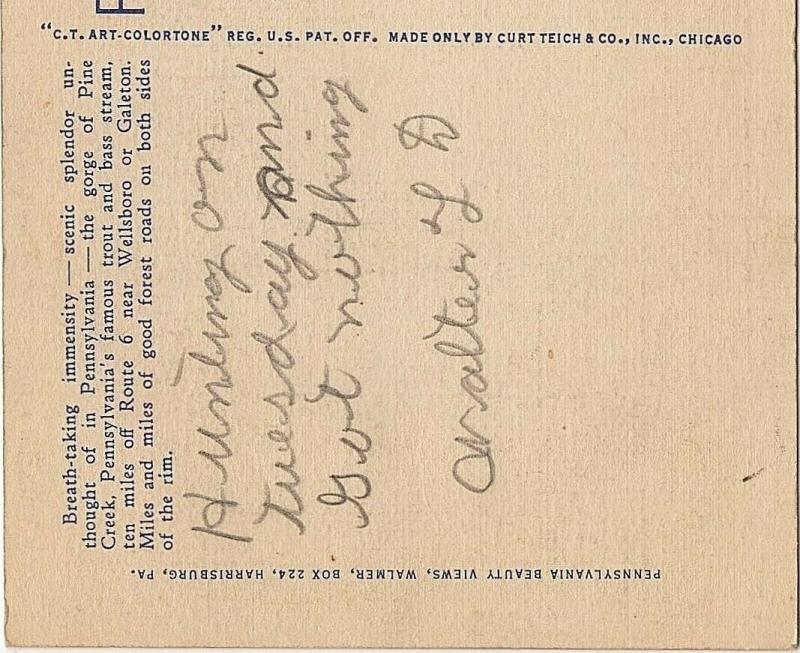 "C.T. ART-COLORTONE" REG. U.S. PAT. OFF. MADE ONLY BY CURT TEICH & CO., INC., CHICAGO
Breath-taking immensity — scenic splendor un-
thought of in Pennsylvania — the gorge of Pine
Creek, Pennsylvania's famous trout and bass stream,
ten miles off Route 6 near Wellsboro or Galeton.
Miles and miles of good forest roads on both sides
of the rim.
Hunting on
tuesday and
Got nothing
Walter L D
PENNSYLVANIA BEAUTY VIEWS, WALMER, BOX 224, HARRISBURG, PA.